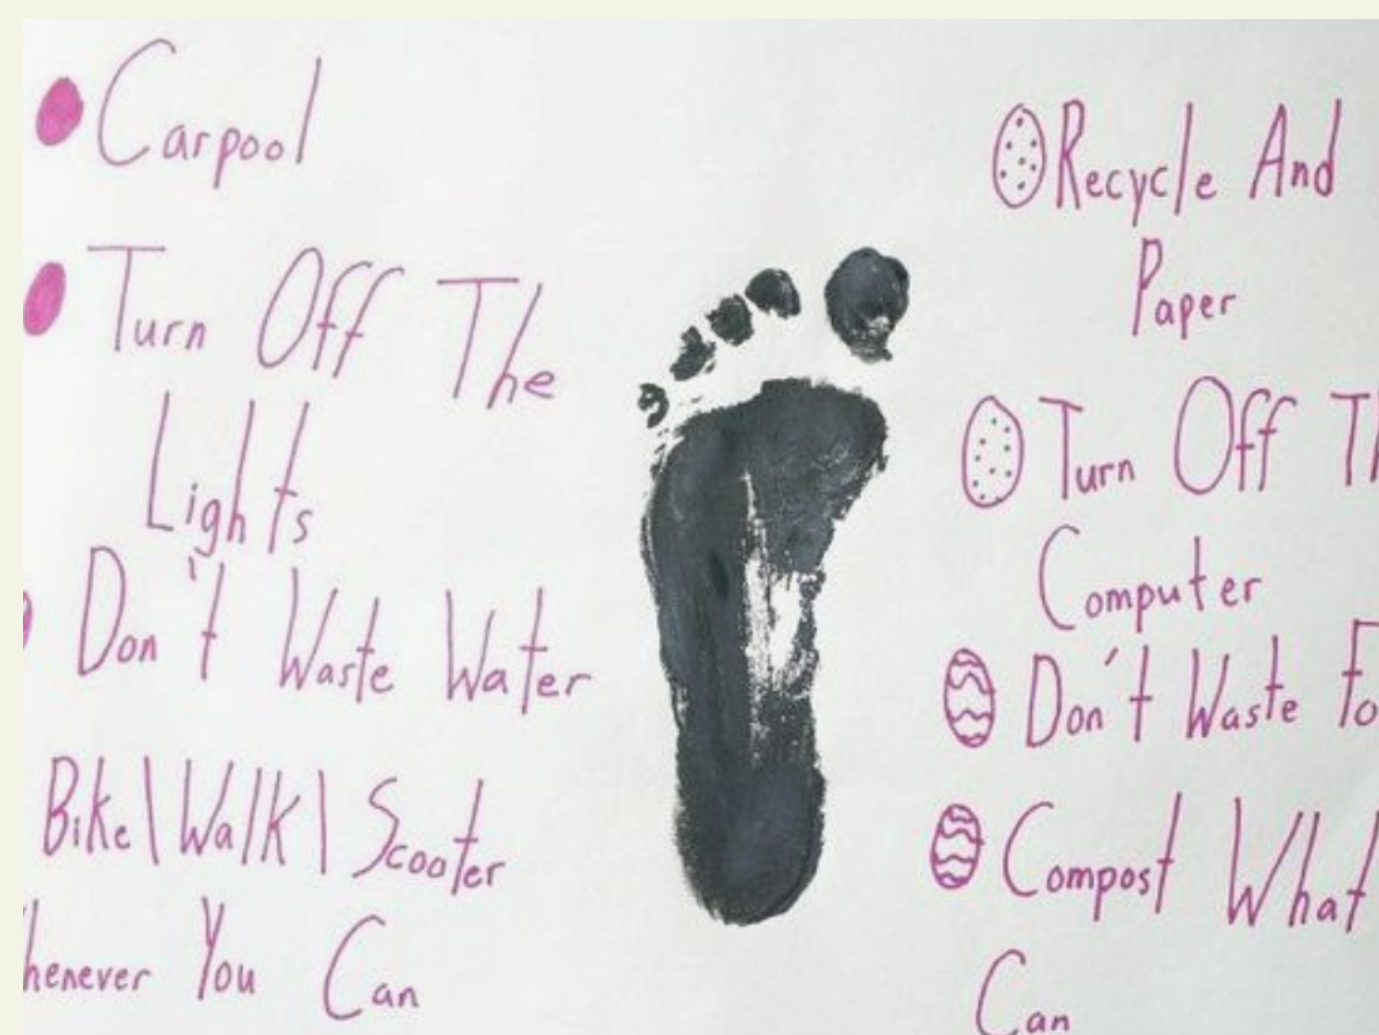 Carpool
Turn Off The
Lights
Don't Waste Water
Bike|Walk|Scooter
henever You Can
Recycle And
Paper
Turn Off Th
Computer
Don't Waste Fo
Compost What
Can